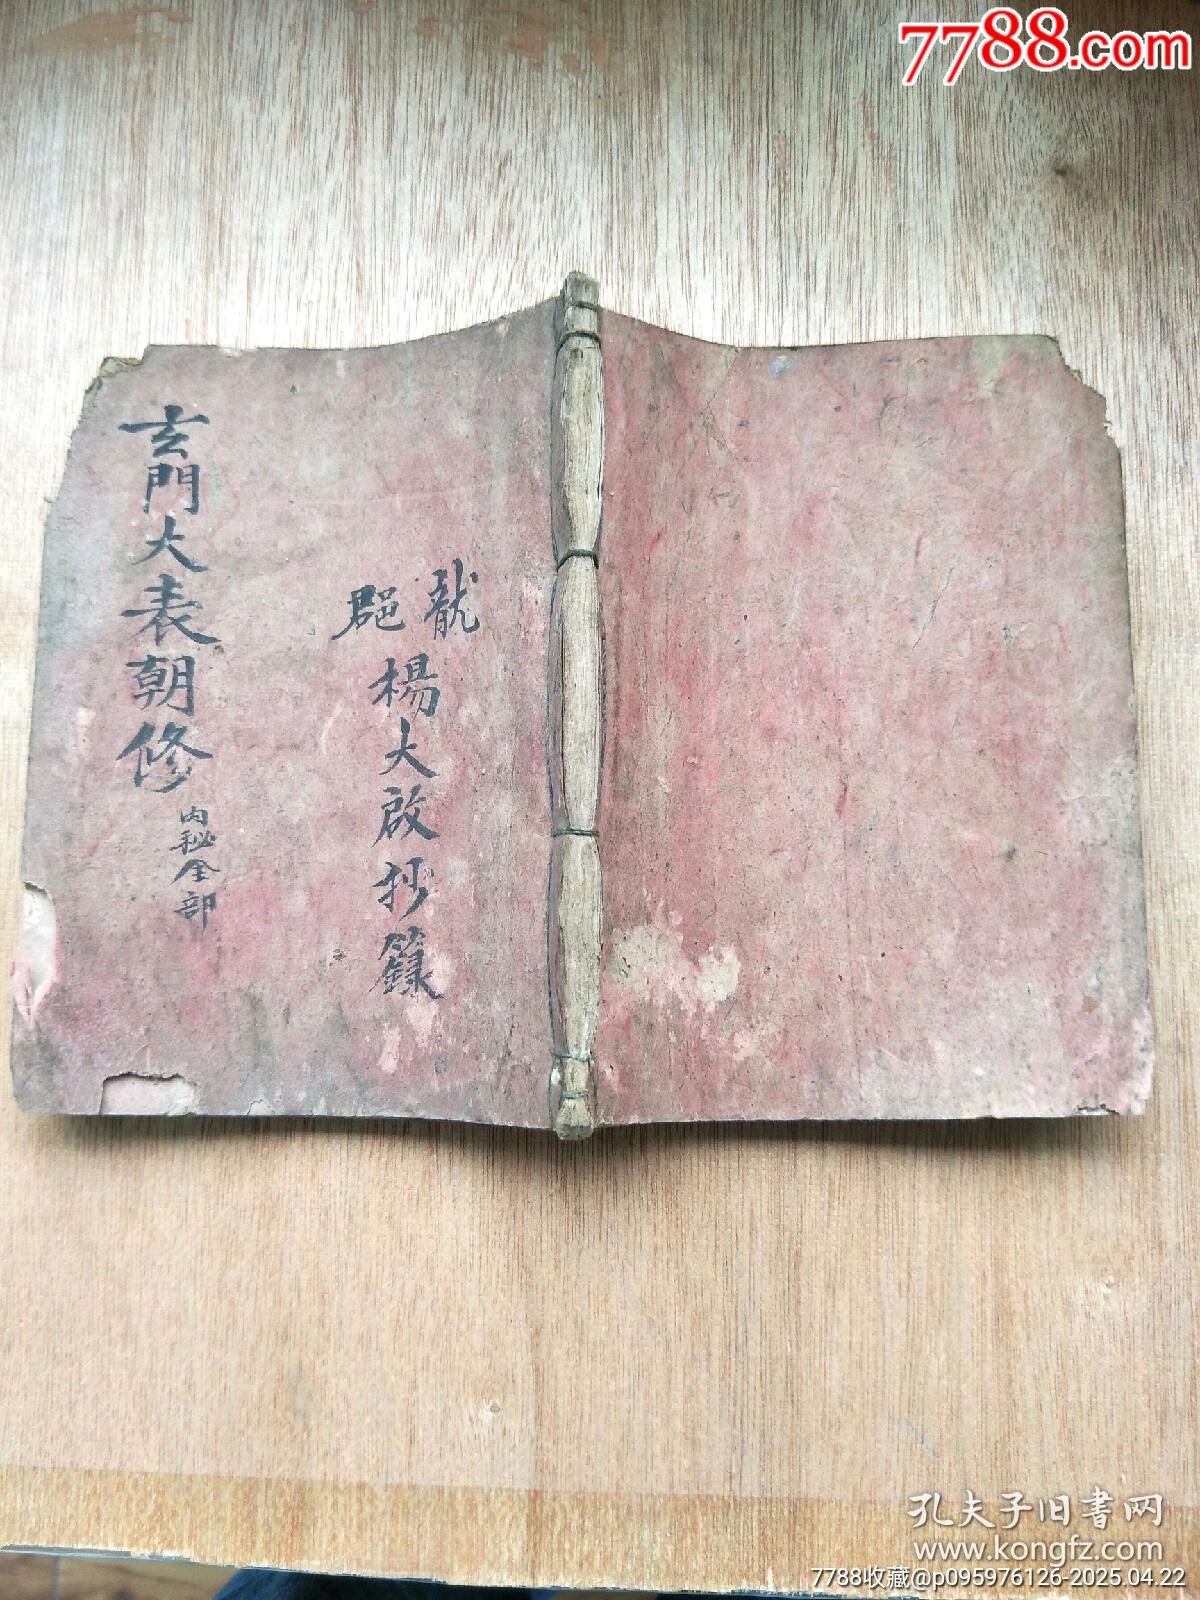 7788.com
玄門大表朝修
内秘全部
龍
邑
楊大啟抄籙
孔夫子旧书网
www.kongfz.com
7788收藏@p095976126-2025.04.22